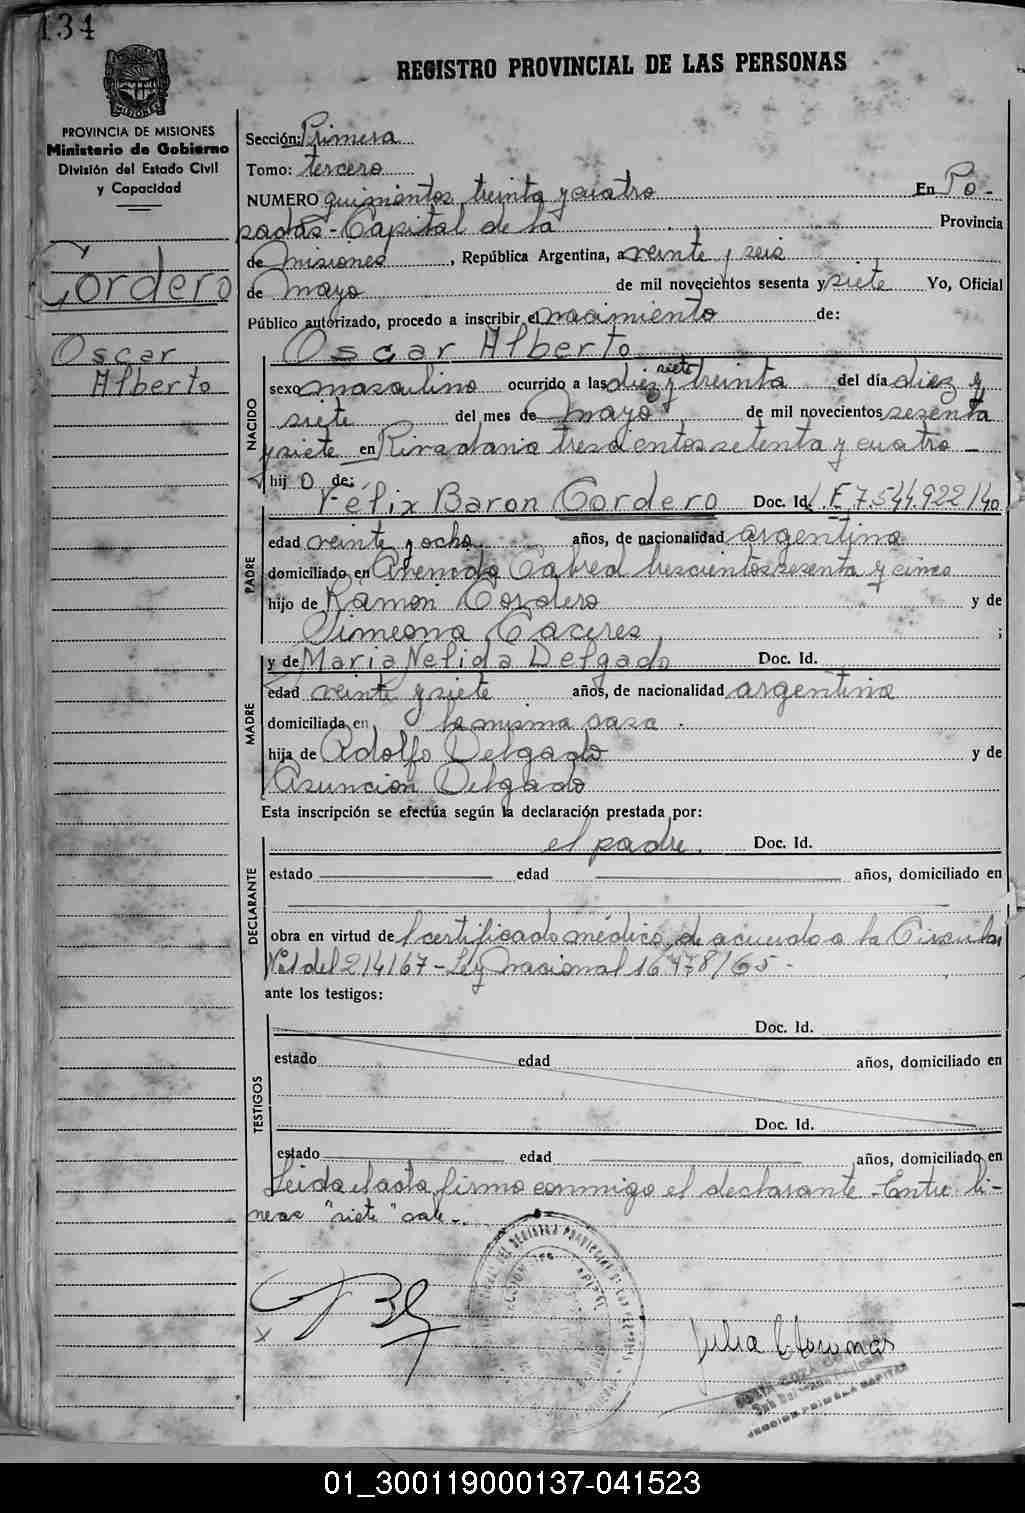 134
REGISTRO PROVINCIAL DE LAS PERSONAS
PROVINCIA DE MISIONES
Ministerio de Gobierno
División del Estado Civil
y Capacidad
Cordero
Oscar
Alberto
Sección: Primera
Tomo: tercero
NUMERO quinientos treinta y cuatro En Po-
sadas - Capital de la Provincia
de Misiones, República Argentina, a veinte y seis
de mayo de mil novecientos sesenta y siete Yo, Oficial
Público autorizado, procedo a inscribir el nacimiento de:
Oscar Alberto
siete
NACIDO
sexo masculino ocurrido a las diez y treinta del día diez y
siete del mes de mayo de mil novecientos sesenta
y siete en Rivadavia trescientos setenta y cuatro -
hij o de:
Félix Baron Cordero Doc. Id. L.E. 7.544.922/40
PADRE
edad veinte y ocho años, de nacionalidad argentina
domiciliado en Avenida Cabred trescientos sesenta y cinco
hijo de Ramón Cordero y de
Simeona Caceres ;
y de Maria Nelida Delgado Doc. Id.
MADRE
edad veinte y siete años, de nacionalidad argentina
domiciliada en la misma casa.
hija de Adolfo Delgado y de
Asunción Delgado
Esta inscripción se efectúa según la declaración prestada por:
el padre. Doc. Id.
DECLARANTE
estado edad años, domiciliado en
obra en virtud de l certificado médico, de acuerdo a la Circular
Nº1 del 2/4/67 - Ley Nacional 16.478/65 -
ante los testigos:
TESTIGOS
Doc. Id.
estado edad años, domiciliado en
Doc. Id.
estado edad años, domiciliado en
Leida el acta firma conmigo el declarante - Entre li-
neas "siete" vale -
Julia
SECCION PRIMERA CAPITAL
01_300119000137-041523